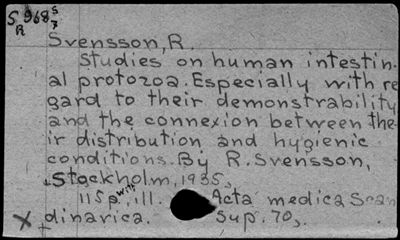 S 968 5/7
R
Svensson, R.
Studies on human intestin-
al protozoa. Especially with re
gard to their demonstrability
and the connexion between the-
ir distribution and hygienic
conditions. By R. Svensson,
Stockholm, 1935,
115p. with ill. Acta medica Scan
x dinavica. Sup. 70,